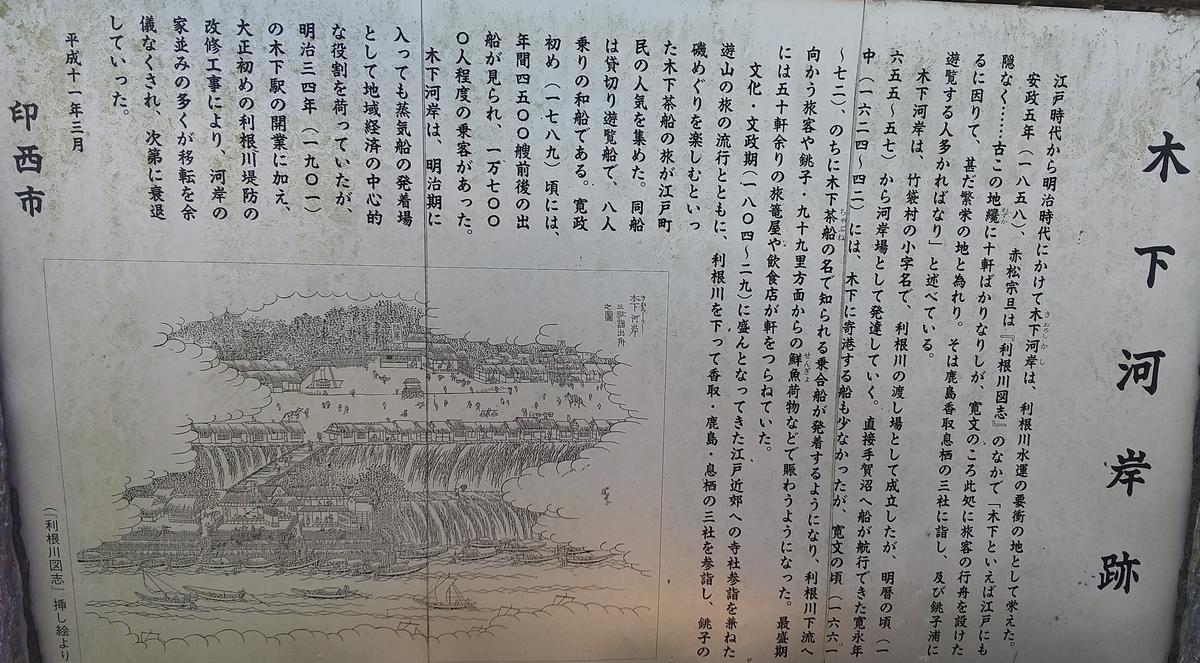 木下河岸跡
江戸時代から明治時代にかけて木下河岸は、利根川水運の要衝の地として栄えた。
安政五年(一八五八)、赤松宗旦は『利根川図志』のなかで「木下といえば江戸にも
隠なく……古この地纔に十軒ばかりなりしが、寛文のころ此処に旅客の行舟を設けた
るに因りて、甚だ繁栄の地と為れり。そは鹿島香取息栖の三社に詣し、及び銚子浦に
遊覧する人多かればなり」と述べている。
木下河岸は、竹袋村の小字名で、利根川の渡し場として成立したが、明暦の頃(一
六五五~五七)から河岸場として発達していく。直接手賀沼へ船が航行できた寛永年
中(一六二四~四二)には、木下に寄港する船も少なかったが、寛文の頃(一六六一
~七二)、のちに木下茶船の名で知られる乗合船が発着するようになり、利根川下流へ
向かう旅客や銚子・九十九里方面からの鮮魚荷物などで賑わうようになった。最盛期
には五十軒余りの旅篭屋や飲食店が軒をつらねていた。
文化・文政期(一八〇四~二九)に盛んとなってきた江戸近郊への寺社参詣を兼ねた
遊山の旅の流行とともに、利根川を下って香取・鹿島・息栖の三社を参詣し、銚子の
磯めぐりを楽しむといっ
た木下茶船の旅が江戸町
民の人気を集めた。同船
は貸切り遊覧船で、八人
乗りの和船である。寛政
初め(一七八九)頃には、
年間四五〇〇艘前後の出
船が見られ、一万七〇〇
〇人程度の乗客があった。
木下河岸は、明治期に
入っても蒸気船の発着場
として地域経済の中心的
な役割を荷っていたが、
明治三四年(一九〇一)
の木下駅の開業に加え、
大正初めの利根川堤防の
改修工事により、河岸の
家並みの多くが移転を余
儀なくされ、次第に衰退
していった。
平成十一年三月
印西市
木下河岸
三社詣出舟
之圖
(『利根川図志』挿し絵より)